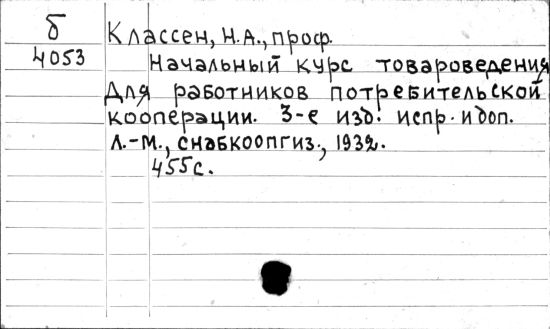 б
4053
Классен, Н.А., проф.
Начальный курс товароведения
Для работников потребительской
кооперации. 3-е изд. испр. и доп.
Л.-М., снабкоопгиз., 1932.
455с.